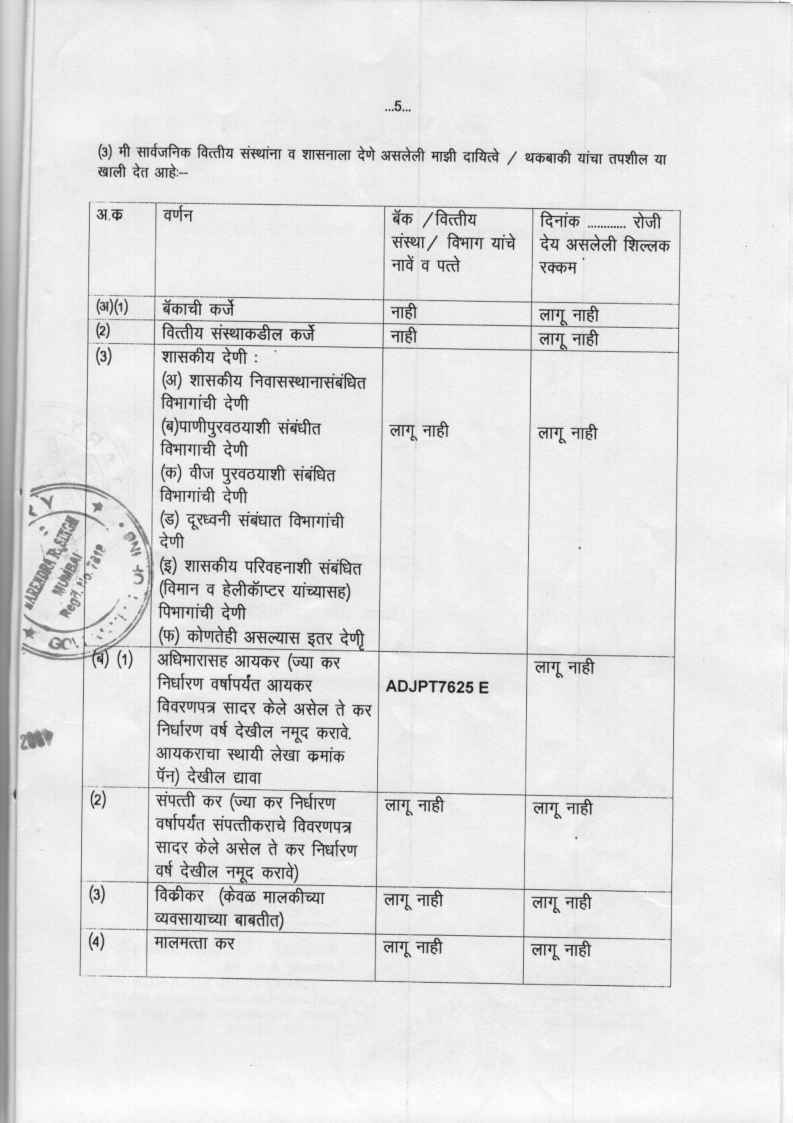 ...5...
(३) मी सार्वजनिक वित्तीय संस्थांना व शासनाला देणे असलेली माझी दायित्वे / थकबाकी यांचा तपशील या
खाली देत आहेः--
अ.क्र
वर्णन
बॅक /वित्तीय
संस्था/ विभाग यांचे
नावें व पत्ते
दिनांक ............ रोजी
देय असलेली शिल्लक
रक्कम
(अ)(१)
बॅकाची कर्जे
नाही
लागू नाही
(२)
वित्तीय संस्थाकडील कर्जे
नाही
लागू नाही
(३)
शासकीय देणी :
(अ) शासकीय निवासस्थानासंबंधित
विभागांची देणी
(ब)पाणीपुरवठयाशी संबंधीत
विभागाची देणी
(क) वीज पुरवठयाशी संबंधित
विभागांची देणी
(ड) दूरध्वनी संबंधात विभागांची
देणी
(इ) शासकीय परिवहनाशी संबंधित
(विमान व हेलीकॅाप्टर यांच्यासह)
पिभागांची देणी
(फ) कोणतेही असल्यास इतर देणी
लागू नाही
लागू नाही
(ब) (१)
अधिभारासह आयकर (ज्या कर
निर्धारण वर्षापर्यंत आयकर
विवरणपत्र सादर केले असेल ते कर
निर्धारण वर्ष देखील नमूद करावे.
आयकराचा स्थायी लेखा क्रमांक
पॅन) देखील द्यावा
ADJPT7625 E
लागू नाही
(२)
संपत्ती कर (ज्या कर निर्धारण
वर्षापर्यंत संपत्तीकराचे विवरणपत्र
सादर केले असेल ते कर निर्धारण
वर्ष देखील नमूद करावे)
लागू नाही
लागू नाही
(३)
विक्रीकर (केवळ मालकीच्या
व्यवसायाच्या बाबतीत)
लागू नाही
लागू नाही
(४)
मालमत्ता कर
लागू नाही
लागू नाही
NARENDRA R. SINGH
MUMBAI
Regn. No. 7819